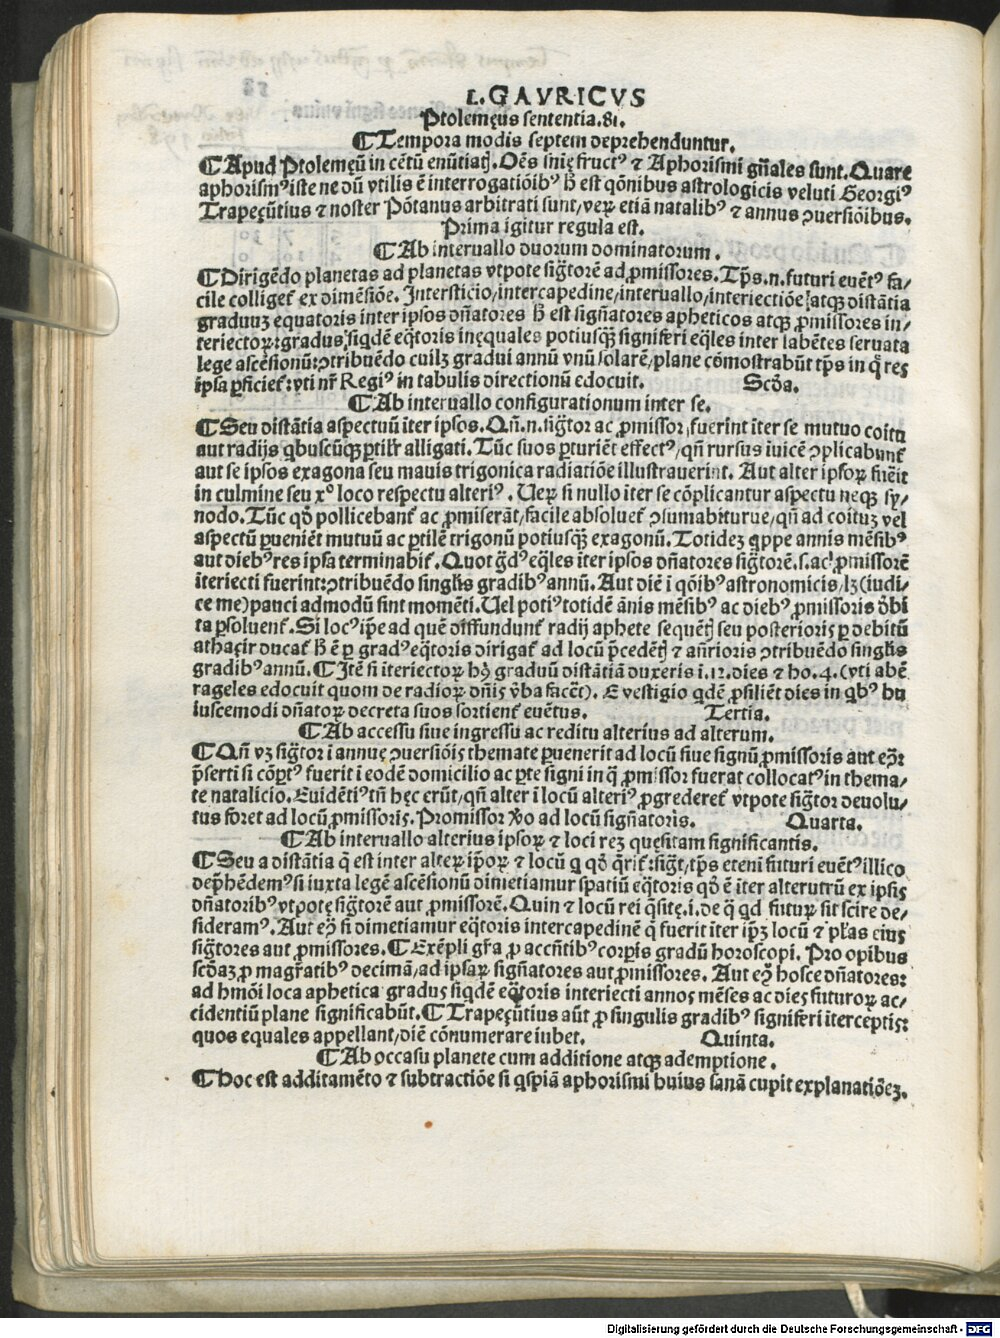 L. GAVRICVS
Ptolemęus sententia.81.
¶Tempora modis septem deprehenduntur.
¶Apud Ptolemęū in cētū enūtiatꝭ. Oēs snīę fructꝰ ⁊ Aphorismi gn̄ales sunt. Quare
aphorismꝰ iste ne dū vtilis ē interrogatiōibꝰ hͦ est qōnibus astrologicis veluti Georgiꝰ
Trapeçūtius ⁊ noster Pōtanus arbitrati sunt/veꝝ etiā natalibꝰ ⁊ annus ↄuersiōibus.
Prima igitur regula est.
¶Ab interuallo duorum dominatorum.
¶Dirigēdo planetas ad planetas vtpote sig̃torē ad ꝓmissores. Tp̄s.n.futuri euētꝰ fa/
cile colliget̃ ex dimēsiōe. Intersticio/intercapedine/interuallo/interiectiōe/atqꝫ distātia
graduuꝫ equatoris inter ipsos dn̄atores hͦ est sign̄atores apheticos atqꝫ ꝓmissores in/
teriectoꝝ:gradus/siqdē eq̃toris inęquales potiusqꝫ̃ signiferi eq̄les inter labētes seruata
lege ascēsionū:ↄtribuēdo cuilꝫ gradui annū vnū solarē/plane cōmostrabūt tp̄s in q̃ res
ip̄sa ꝑficiet̃:vti nr̄ Regiꝰ in tabulis directionū edocuit. Scd̄a.
¶Ab interuallo configurationum inter se.
¶Seu distātia aspectuū īter ipsos. Qn̄.n.sig̃tor ac ꝓmissor/fuerint īter se mutuo coitu
aut radijs qbuscūqꝫ ꝑtilr̄ alligati. Tūc suos ꝑturiēt effectꝰ/qn̄ rursus iuicē ↄplicabunt
aut se ipsos exagona seu mauis trigonica radiatiōe illustrauerint. Aut alter ipsoꝝ fuēit
in culmine seu x° loco respectu alteriꝰ. Ueꝝ si nullo īter se cōplicantur aspectu neqꝫ sy/
nodo. Tūc qd̄ pollicebant̃ ac ꝓmiserāt/facile absoluet̃ ↄsumabiturue/qn̄ ad coituꝫ vel
aspectū ꝑueniēt mutuū ac ꝑtilē trigonū potiusqꝫ̃ exagonū. Totideꝫ qppe annis mēsibꝰ
aut diebꝰ res ipsa terminabit̃. Quot g̃dꝰ eq̄les īter ipsos dn̄atores sig̃torē.s.ac ꝓmissorē
īteriecti fuerint:ↄtribuēdo singlīs gradibꝰ annū. Aut diē i qōibꝰ astronomicis/lꝫ (iudi/
ce me) pauci admodū sint momēti. Uel potiꝰ totidē ānis mēsibꝰ ac diebꝰ ꝓmissoris d̄bi
ta ꝑsoluent̃. Si locꝰ ip̄e ad quē diffundunt̃ radij aphete sequētꝭ seu posterioris ꝑ debitū
athaçir ducat̃ hͦ ē ꝑ gradꝰ eq̃toris dirigat̃ ad locū p̄cedētꝭ ⁊ an̄rioris ↄtribuēdo singlīs
gradibꝰ annū. ¶Itē si īteriectoꝝ hꝰ graduū distātiā duxeris i.12.dies ⁊ ho.4.(vti abē
rageles edocuit quom de radioꝝ dn̄is v̄ba facēt). E vestigio qdē ꝓsiliēt dies in qbꝰ hu
iuscemodi dn̄atoꝝ decreta suos sortient̃ euētus. Tertia.
¶Ab accessu siue ingressu ac reditu alterius ad alterum.
¶Qn̄ vꝫ sig̃tor ī annuę ↄuersiōis themate ꝑuenerit ad locū siue signū ꝓmissoris aut eoꝝ:
p̄serti si cōp̄tꝰ fuerit ī eodē domicilio ac ꝑte signi in q̃ ꝓmissor fuerat collocatꝰ in thema/
te natalicio. Euidētiꝰ tn̄ hęc erūt/qn̄ alter ī locū alteriꝰ ꝓgrederet̃ vtpote sig̃tor deuolu/
tus foret ad locū ꝓmissoris. Promissor v̄o ad locū sign̄atoris. Quarta.
¶Ab interuallo alterius ipsoꝝ ⁊ loci reꝫ quęsitam significantis.
¶Seu a distātia q̄ est inter alteꝝ ip̄oꝝ ⁊ locū q qd̄ q̄rit̃:sig̃t/tp̄s eteni futuri euētꝰ illico
dep̄hēdemꝰ si iuxta legē ascēsionū dimetiamur spatiū eq̃toris qd̄ ē īter alterutrū ex ipsis
dn̄atoribꝰ vtpote sig̃torē aut ꝓmissorē. Quin ⁊ locū rei q̄sitę.i.de q̃ qd futuꝝ sit scire de/
sideramꝰ. Aut eꝫ si dimetiamur eq̃toris intercapedinē q̄ fuerit īter ip̄ꝫ locū ⁊ pl̄as eius
sig̃tores aut ꝓmissores. ¶Exēpli gr̄a ꝓ accn̄tibꝰ corpis gradū horoscopi. Pro opibus
scd̄aꝫ ꝓ magr̄atibꝰ decimā/ad ipsaꝝ sign̄atores aut ꝓmissores. Aut eꝫ hosce dn̄atores:
ad hmōi loca aphetica gradus siqdē eq̃toris interiecti annos mēses ac dies futuroꝝ ac/
cidentiū plane significabūt. ¶Trapeçūtius aūt ꝓ singulis gradibꝰ signiferi īterceptis:
quos equales appellant/diē cōnumerare iubet. Quinta.
¶Ab occasu planete cum additione atqꝫ ademptione.
¶Hoc est additamēto ⁊ subtractiōe si qspiā aphorismi huius sanā cupit explanatiōeꝫ.
Digitalisierung gefördert durch die Deutsche Forschungsgemeinschaft - DFG